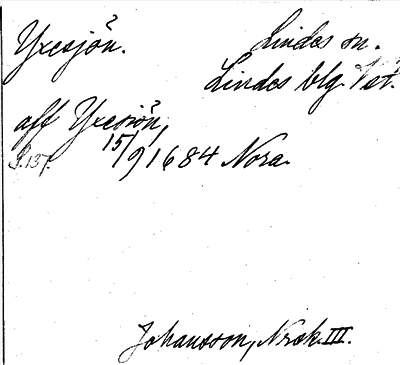 Yxesjön. Lindes sn.
Lindes blg. Vst.
aff Yxesiön,
S. 137. 15/9 1684 Nora.
Johansson, Nrsk. III.